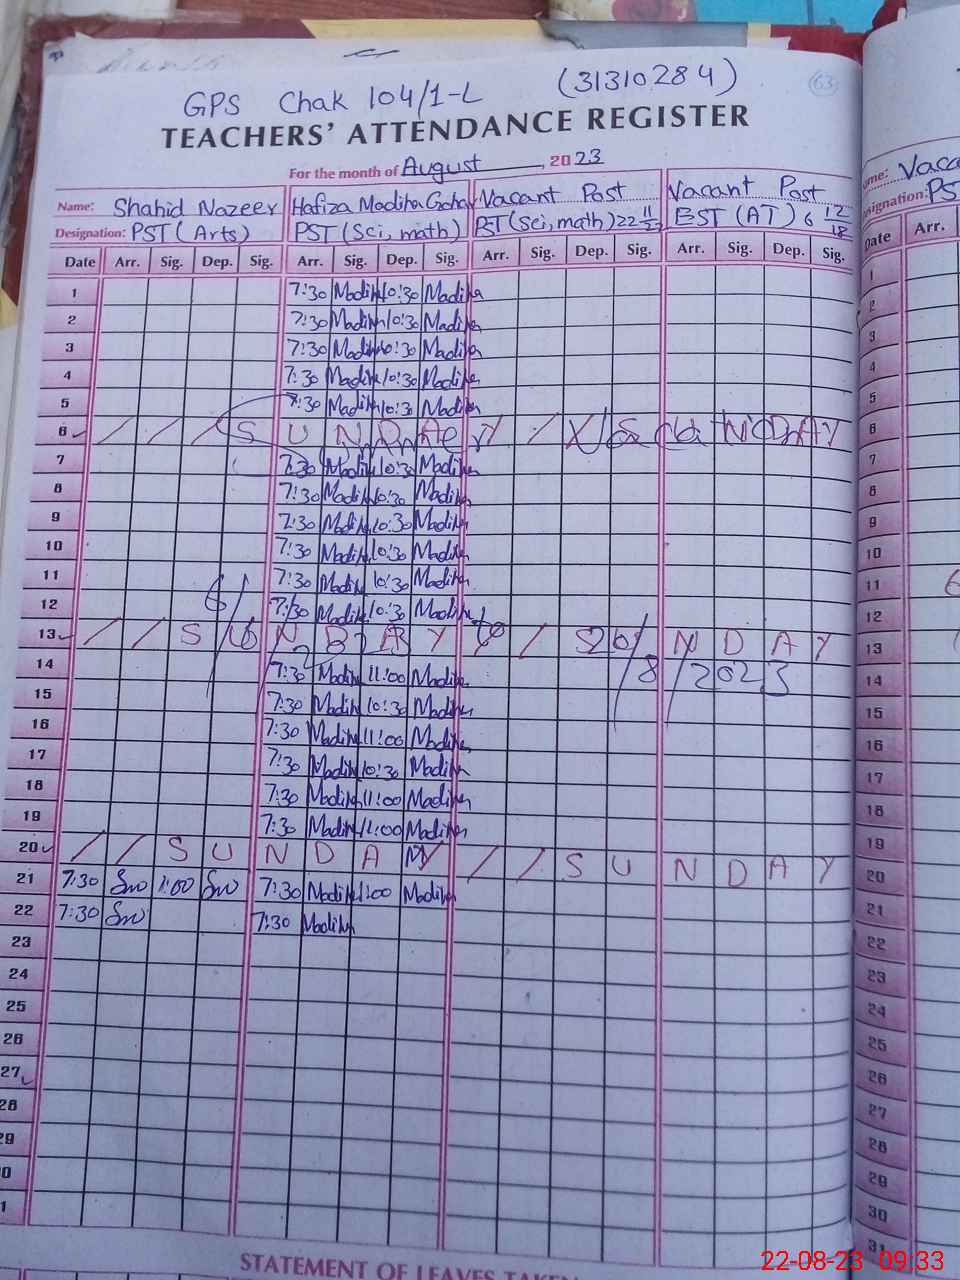 63
GPS Chak 104/1-L (31310284)
TEACHERS' ATTENDANCE REGISTER
For the month of August, 2023
Name: Shahid Nazeer Hafiza Madiha Vacant Post Vacant Post
Designation: PST (Arts) PST (Sci, math) PST (Sci, math) 22 EST (AT) 6 12 18
Date Arr. Sig. Dep. Sig. Arr. Sig. Dep. Sig. Arr. Sig. Dep. Sig. Arr. Sig. Dep. Sig.
1 7:30 Madiha 10:30 Madiha
2 7:30 Madiha 10:30 Madiha
3 7:30 Madiha 10:30 Madiha
4 7:30 Madiha 10:30 Madiha
5 7:30 Madiha 10:30 Madiha
6 / / / S U N D A Y / / S U N D A Y
7 7:30 Madiha 10:30 Madiha
8 7:30 Madiha 10:30 Madiha
9 7:30 Madiha 10:30 Madiha
10 7:30 Madiha 10:30 Madiha
11 7:30 Madiha 10:30 Madiha
12 7:30 Madiha 10:30 Madiha
13 / / S U N D A Y / / S U N D A Y
14 7:30 Madiha 11:00 Madiha / 8 / 2023
15 7:30 Madiha 10:30 Madiha
16 7:30 Madiha 11:00 Madiha
17 7:30 Madiha 10:30 Madiha
18 7:30 Madiha 11:00 Madiha
19 7:30 Madiha 11:00 Madiha
20 / / S U N D A Y / / S U N D A Y
21 7:30 1:00 7:30 Madiha 11:00 Madiha
22 7:30 7:30 Madiha
23
24
25
26
27
28
29
0
1
STATEMENT OF LEAVES TAKEN
Designation: PS
Date Arr.
1
2
3
4
5
6
7
8
9
10
11
12
13
14
15
16
17
18
19
20
21
22
23
24
25
26
27
28
29
30
31
22-08-23 09:33